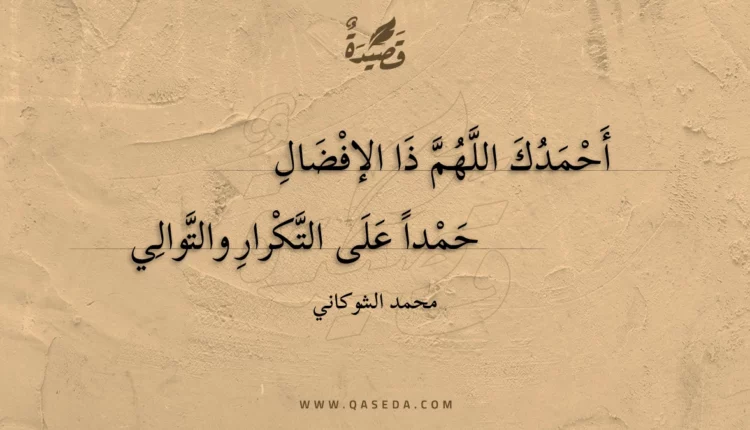 قَصِيدَةٌ
أَحْمَدُكَ اللَّهُمَّ ذَا الإفْضَالِ
حَمْداً عَلَى التَّكْرارِ والتَّوالِي
محمد الشوكاني
WWW.QASEDA.COM